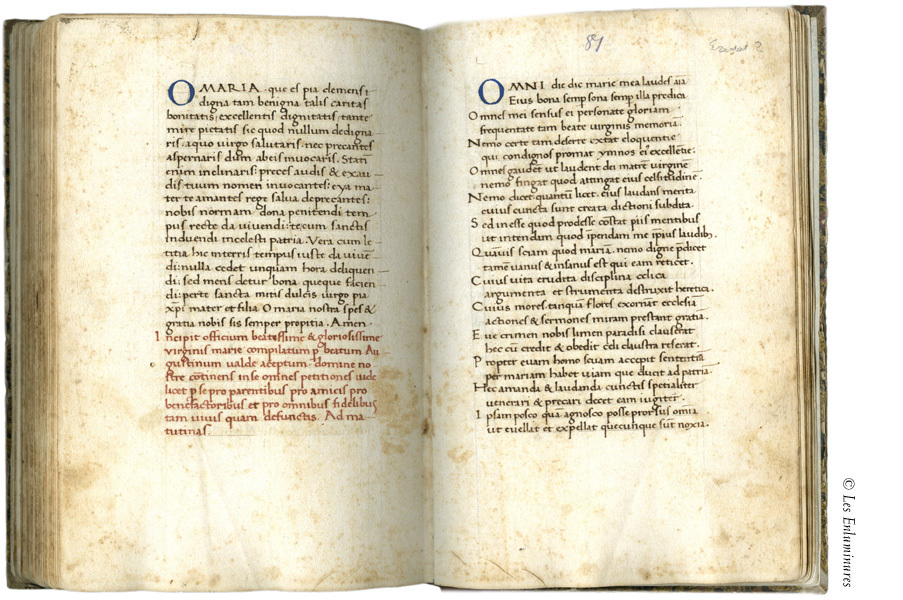 O MARIA que es pia clemens &
digna tam benigna talis caritas
bonitatis, excellentis dignitatis, tante
mire pietatis sic quod nullum dedigna
ris, a quo virgo salutaris, nec precantes
aspernaris dum abeis invocaris. Statī
enim inclinaris: preces audis & exau
dis: tuum nomen invocantes: eya ma
ter te amantes rege salva deprecantes:
nobis normam dona penitendi tem
pus recte da vivendi: tecum sanctis
induendi in celesti patria. Vera cum le
titia hic in terris tempus iuste da vivē
di: nulla cedet unquam hora deliquen
di: sed mens detur bona queque facien
di: per te sancta mitis dulcis virgo pia
xp̄i mater et filia. O maria nostra spes &
gratia nobis sis semper propitia. Amen.
Incipit officium beatissime & gloriosissime
virginis marie compilatum p beatum Au
gustinum valde aceptum domine no
stre continens in se omnes petitiones unde
licet p se pro parentibus pro amicis pro
benefactoribus et pro omnibus fidelibus
tam vivis quam defunctis. Ad ma
tutinas.
81
OMNI die dic marie mea laudes aīa
Eius bona semp sona semp illa predica
Omnes mei sensus ei personate gloriam
frequentate tam beate virginis memoriā.
Nemo certe tam deserte extat eloquentie
qui condignos promat ymnos ei excellētie:
Omnes gaudēt ut laudent dei matrē virginē
nemo fingat quod attingat eius celsitudinē.
Nemo dicet quantū licet eius laudans merita
cuius cuncta sunt creata dictioni subdita.
Sed in esse quod prodesse cōstat piis mentibus
ut intendam quod īpendam me ipius laudib;
Quāvis sciam quod mariā nemo digne p̄dicet
tamē vanus & insanus est qui eam reticet.
Cuius vita erudita disciplina celica
argumenta et strumenta destruxit heretica.
Cuius mores tanquā flores exornāt ecclesiā
actiones & sermones miram prestant gratia.
Eve crimen nobis limen paradisi clauserat
hec cū credit & obedit celi claustra referat.
Propter evam homo sevam accepit sententiā
per mariam habet viam que ducit ad patria.
Hec amanda & laudanda cunctis spetialiter
venerari & precari decet eam iugiter.
Ipsam posco quā agnosco posse prorsus omīa
ut evellat et expellat quecunque sūt noxia.
© Les Enluminures